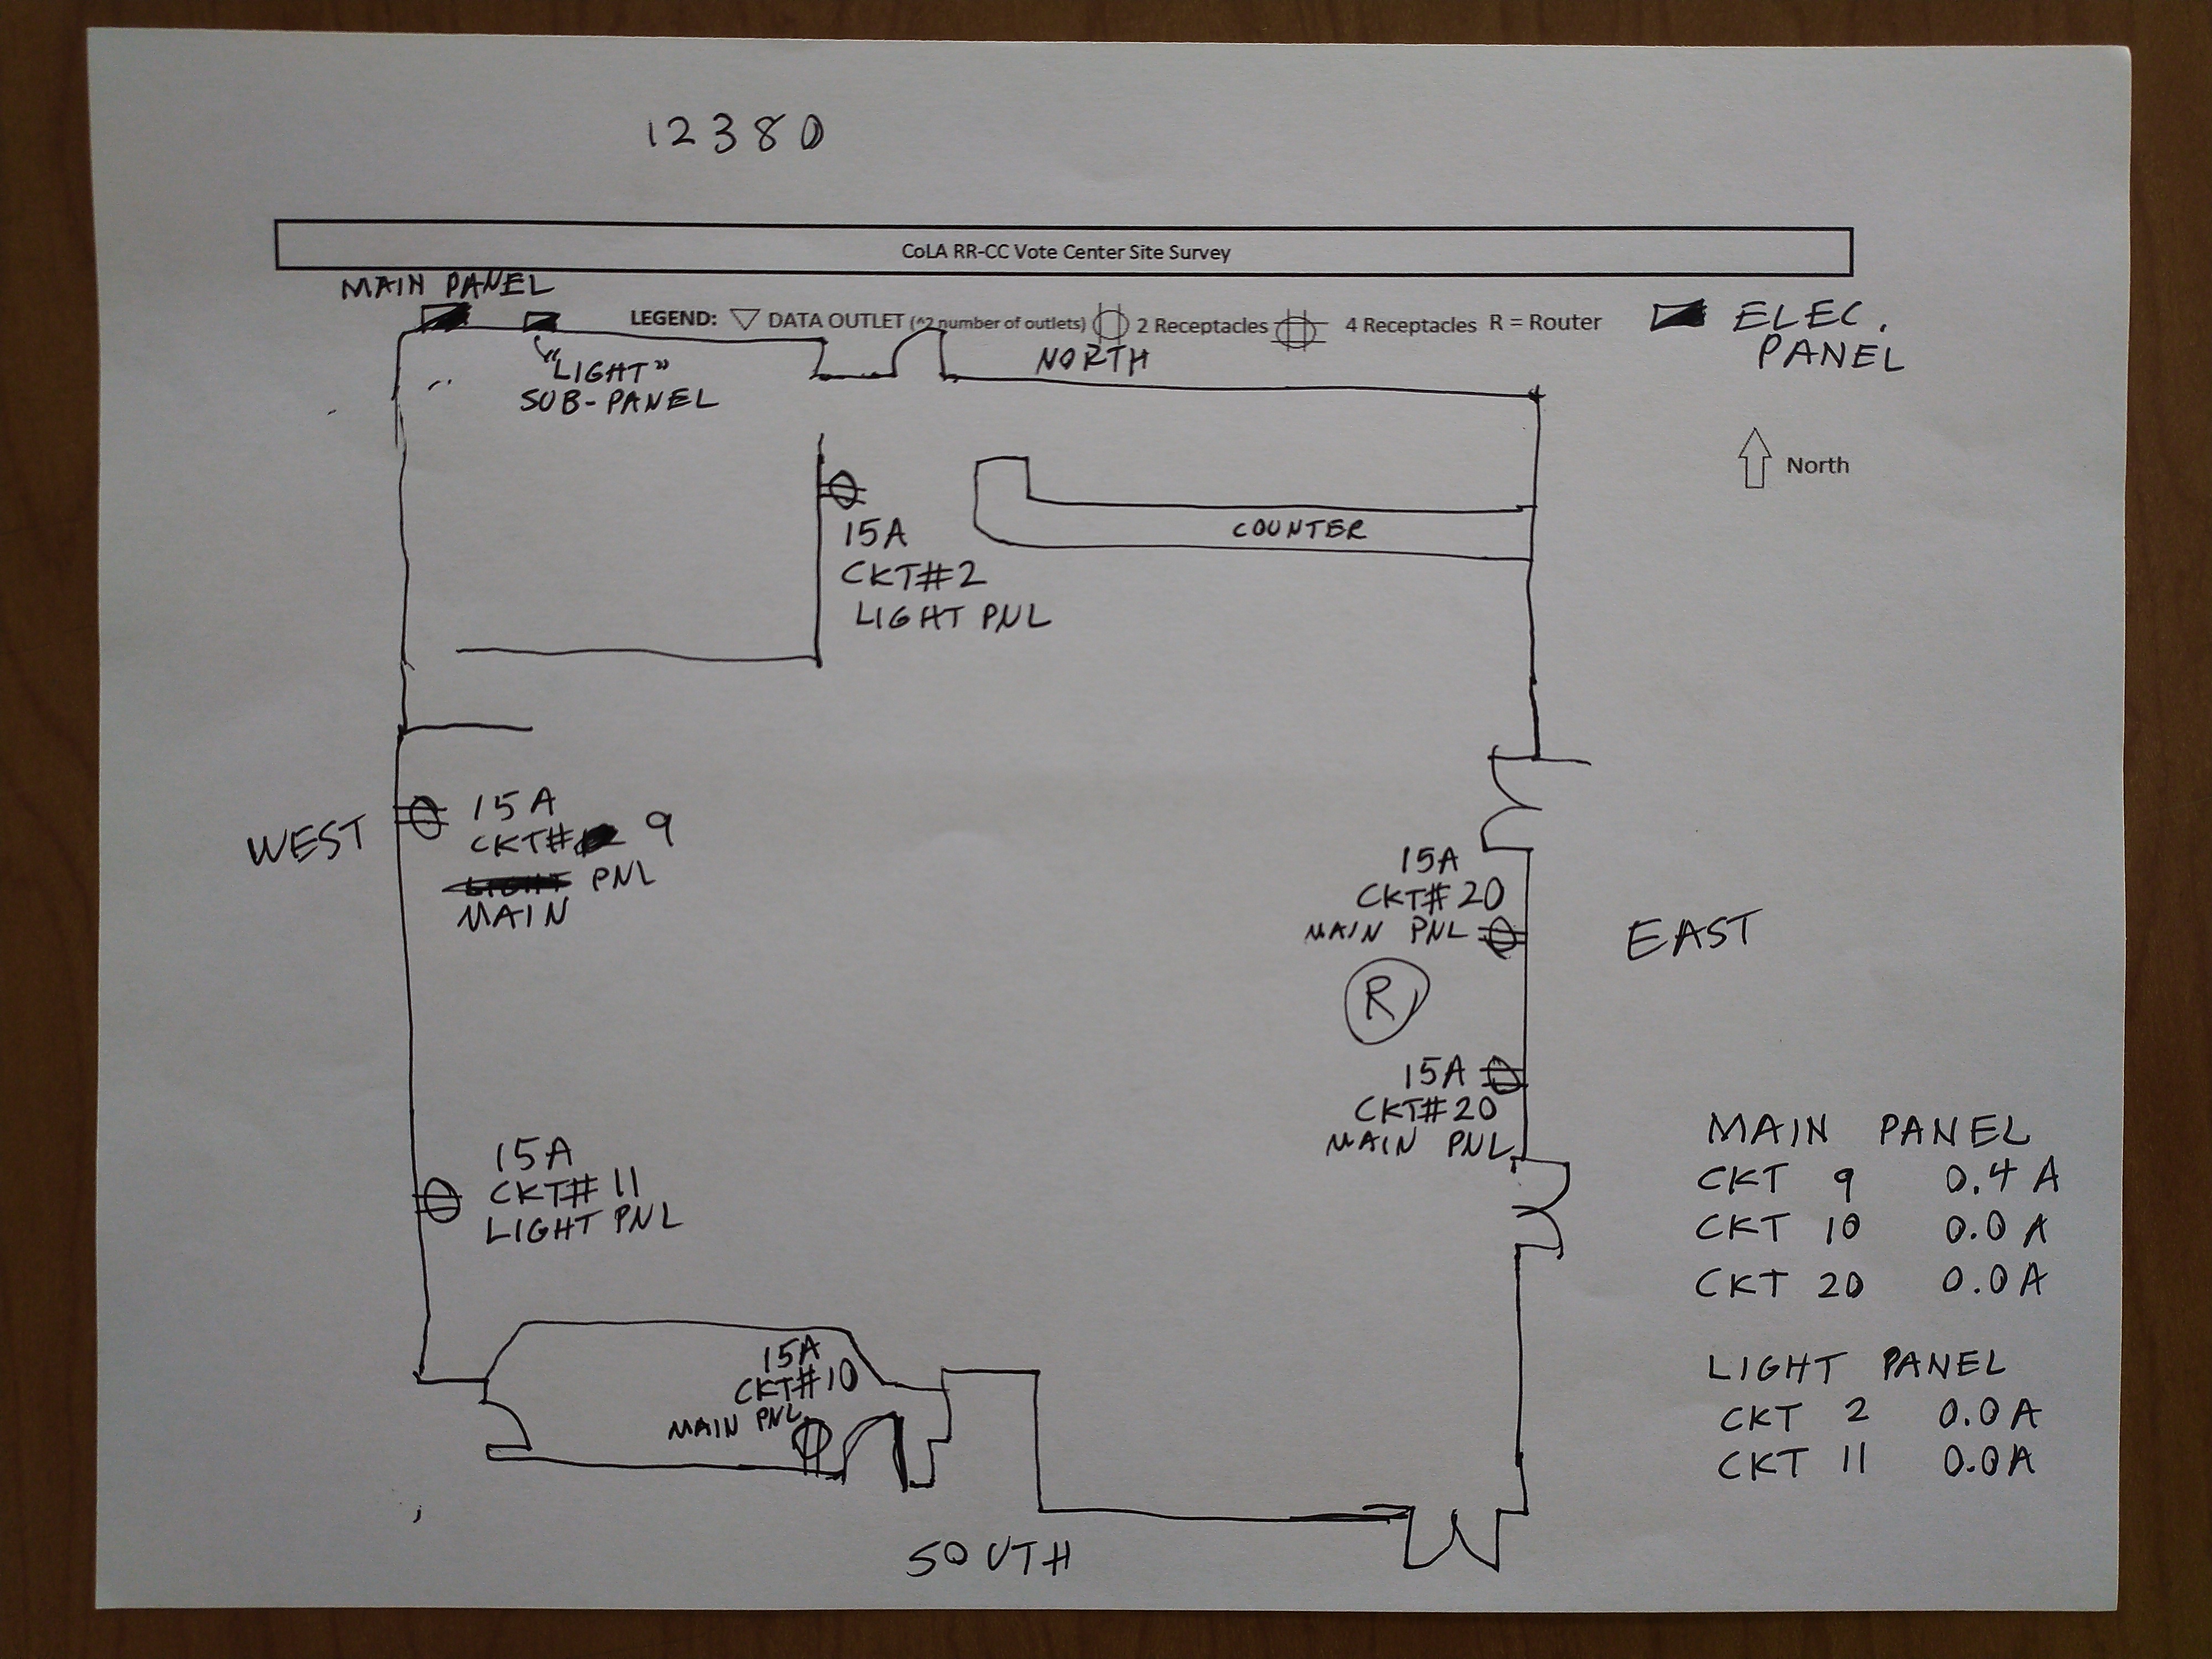 12380
CoLA RR-CC Vote Center Site Survey
MAIN PANEL
LEGEND: DATA OUTLET (^2 number of outlets) 2 Receptacles 4 Receptacles R = Router
ELEC.
PANEL
NORTH
"LIGHT"
SUB-PANEL
North
15A
CKT#2
LIGHT PNL
COUNTER
WEST
15A
CKT# 9
LIGHT PNL
MAIN
15A
CKT#20
MAIN PNL
EAST
R
15A
CKT#20
MAIN PNL
15A
CKT# 11
LIGHT PNL
15A
CKT#10
MAIN PNL
MAIN PANEL
CKT 9 0.4 A
CKT 10 0.0 A
CKT 20 0.0 A
LIGHT PANEL
CKT 2 0.0 A
CKT 11 0.0 A
SOUTH